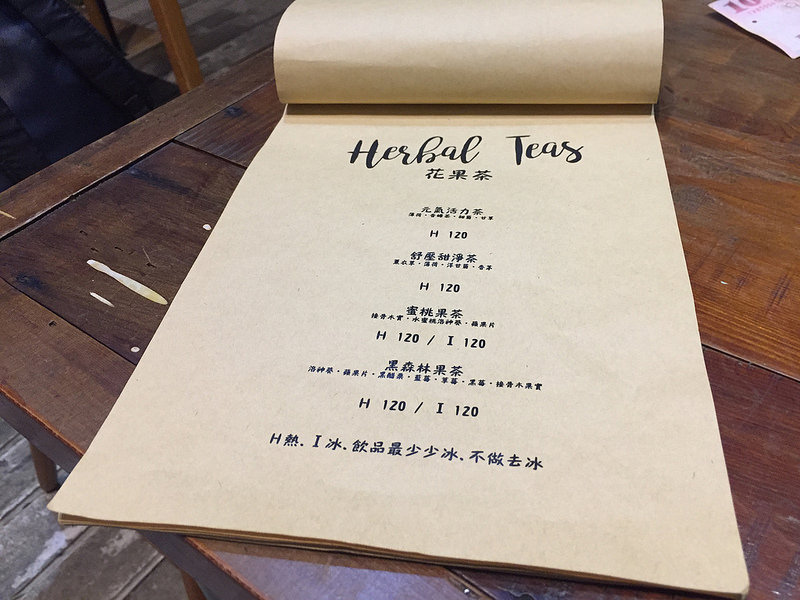 Herbal Teas
花果茶
元氣活力茶
H 120
舒壓甜淨茶
薰衣草・薄荷・洋甘菊・香茅
H 120
蜜桃果茶
接骨木實・水蜜桃洛神葵・蘋果片
H 120 / I 120
黑森林果茶
洛神葵・蘋果片・黑醋栗・藍莓・草莓・黑莓・接骨木果實
H 120 / I 120
H熱.I冰.飲品最少少冰.不做去冰